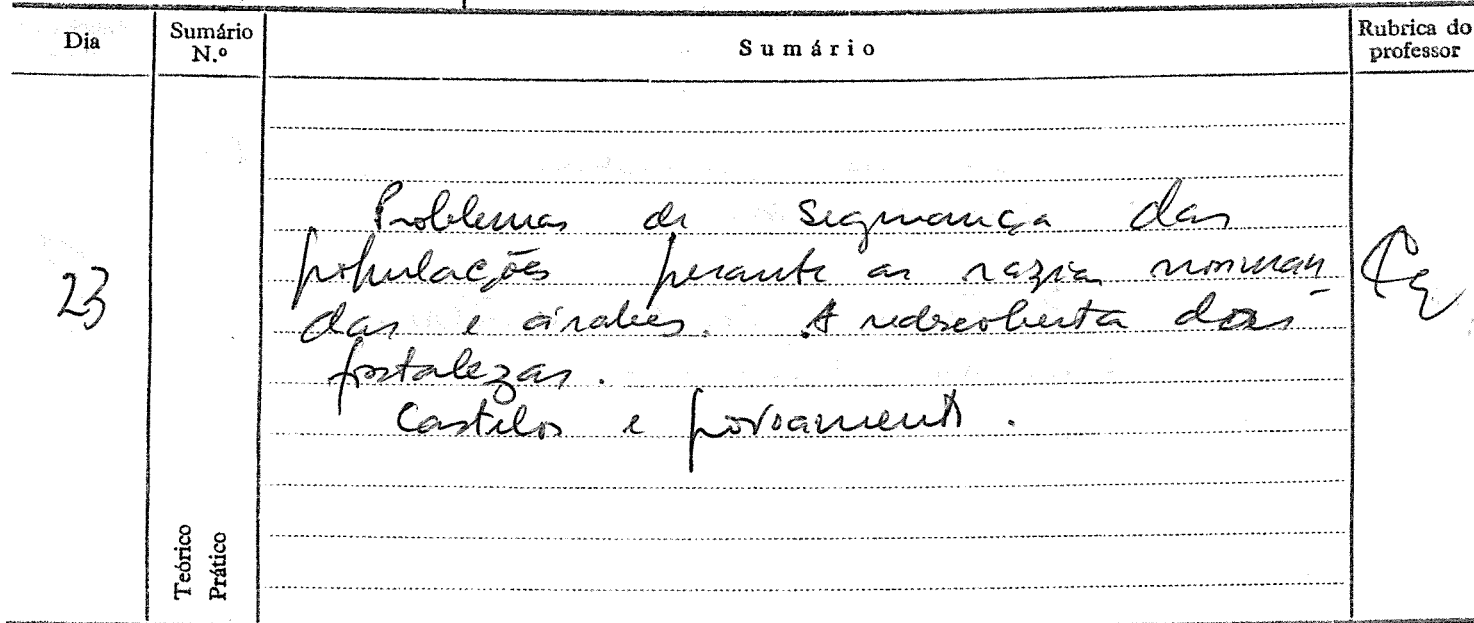 Dia
Sumário N.º
Sumário
Rubrica do professor
23
Problemas de segurança das
populações perante as razias norman-
das e árabes. A redescoberta das
fortalezas.
Castelos e povoamento.
Teórico
Prático